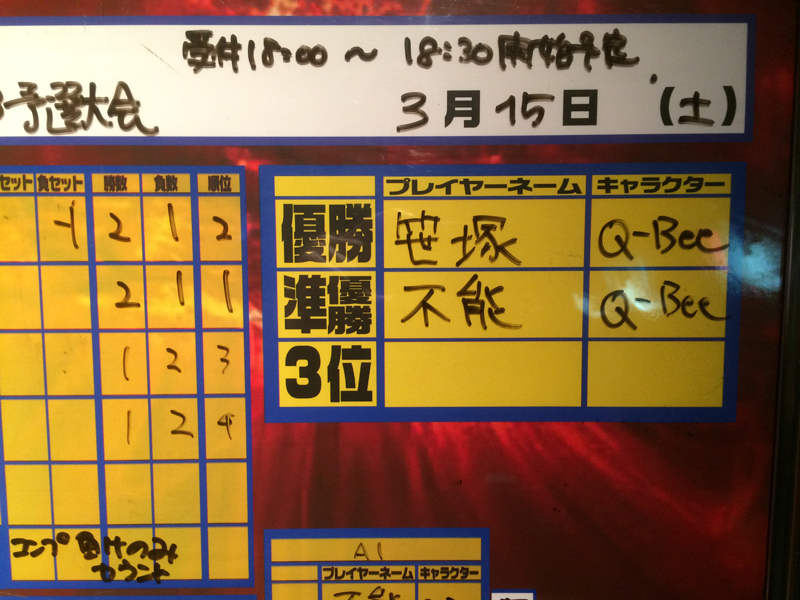 受付18:00 ～ 18:30開始予定
予選大会 3月15日 (土)
セット 負セット 勝数 負数 順位
-1 2 1 2
2 1 1
1 2 3
1 2 4
コンプ負けのみ
カウント
プレイヤーネーム キャラクター
優勝 笹塚 Q-Bee
準優勝 不能 Q-Bee
3位
A1
プレイヤーネーム キャラクター
不能